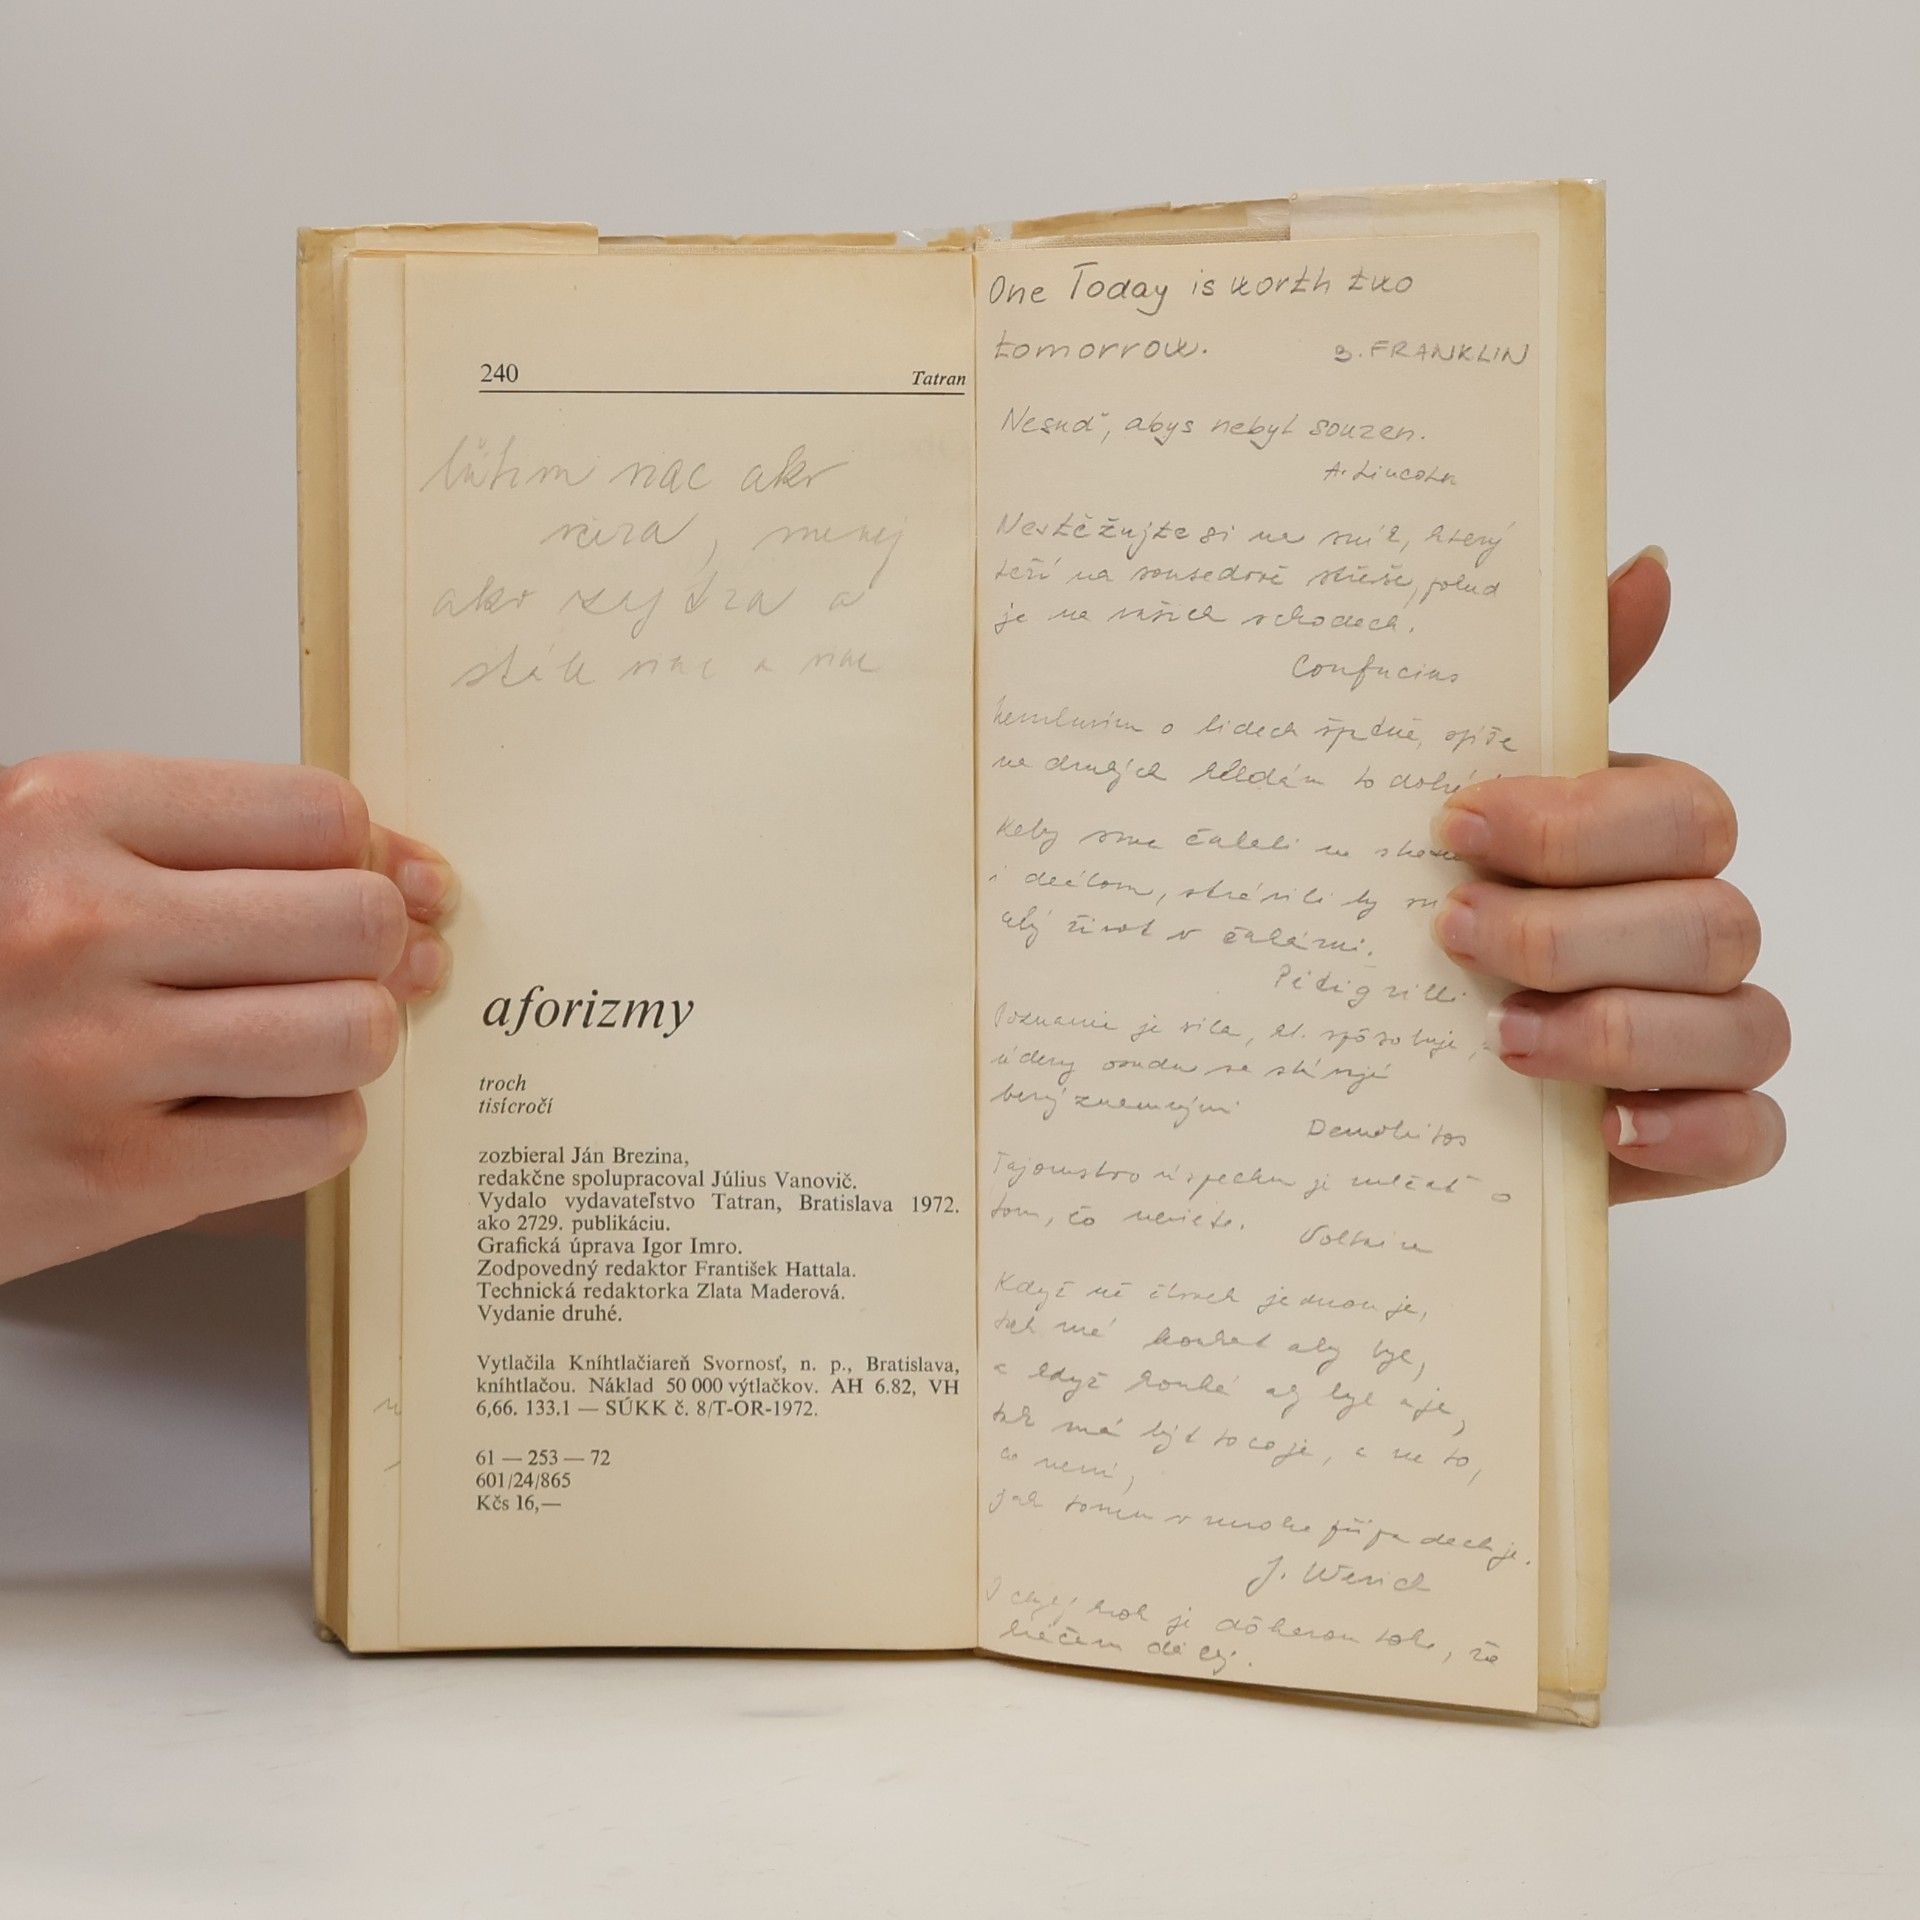 240
Tatran
ľúbim viac ako
včera, menej
ako zajtra a
stále viac a viac
aforizmy
troch
tisícročí
zozbieral Ján Brezina,
redakčne spolupracoval Július Vanovič.
Vydalo vydavateľstvo Tatran, Bratislava 1972.
ako 2729. publikáciu.
Grafická úprava Igor Imro.
Zodpovedný redaktor František Hattala.
Technická redaktorka Zlata Maderová.
Vydanie druhé.
Vytlačila Kníhtlačiareň Svornosť, n. p., Bratislava,
kníhtlačou. Náklad 50 000 výtlačkov. AH 6.82, VH
6,66. 133.1 — SÚKK č. 8/T-OR-1972.
61 — 253 — 72
601/24/865
Kčs 16,—
One Today is worth two
tomorrow.
B. FRANKLIN
Nesuď, abys nebyl souzen.
A. Lincoln
Nestěžujte si na sníh, který
leží na sousedově střeše, pokud
je na vašich schodech.
Confucius
Nemluvím o lidech špatně, spíše
na druhých hledám to dobré
Keby sme čakali na
i deťom, strávili by
celý život v čakárni.
Pitigrilli
Poznanie je sila, kt. spôsobuje,
údery osudu sa stávajú
bezvýznamnými
Demokritos
Tajomstvo úspechu je mlčať o
tom, čo neviete.
Voltaire
Když už člověk jednou je,
tak má koukat aby byl,
a když kouká aby byl a je,
tak má být to co je, a ne to,
co není,
jak tomu v mnoha případech je.
J. Werich
krok je dôkazom toho, že
kráčam ďalej.